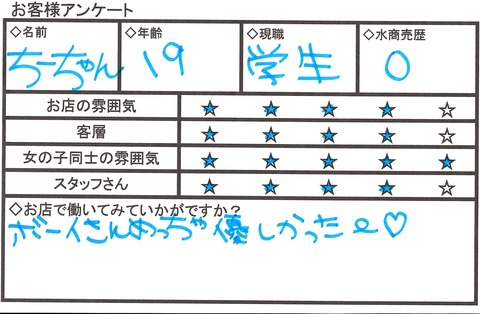 お客様アンケート
◇名前 ◇年齢 ◇現職 ◇水商売歴
ちーちゃん 19 学生 0
お店の雰囲気 ★ ★ ★ ★ ☆
客層 ★ ★ ★ ★ ☆
女の子同士の雰囲気 ★ ★ ★ ★ ★
スタッフさん ★ ★ ★ ★ ☆
◇お店で働いてみていかがですか？
ボーイさんめっちゃ優しかったe♡